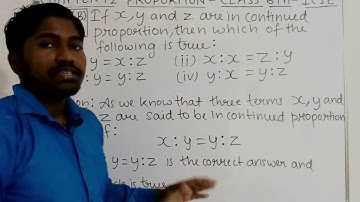 CHAPTER-12 PROPORTION - CLASS 6TH - ICSE
B) If x, y and z are in continued
proportion, then which of the
following is true:
y = x : z (ii) x : x = z : y
: y = y : z (iv) y : x = y : z
ion: As we know that three terms x, y and
z are said to be in continued proportion
if:
x : y = y : z
y = y : z is the correct answer and
is true